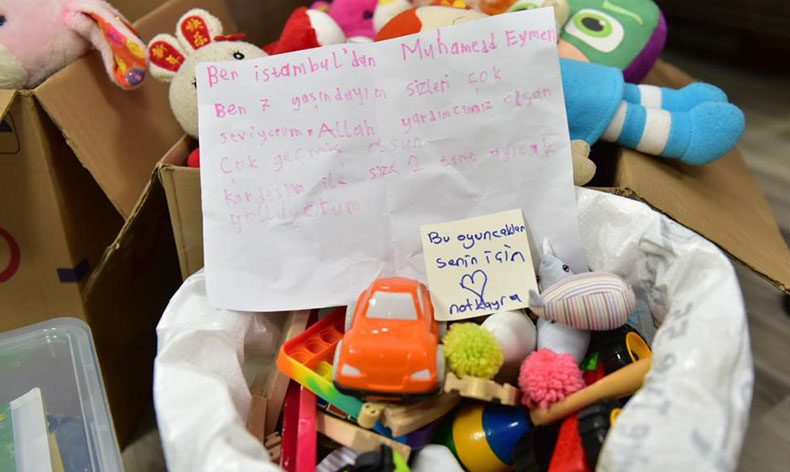 Ben istambul'dan Muhamedd Eymen
Ben 7 yaşındayım sizleri çok
seviyorum. Allah yardımcımız olsun
Çok geçmiş olsun
kardeşim ile size 2 tane oyıcak
yolluyorum
Bu oyuncaklar
senin için
♡
not kayra